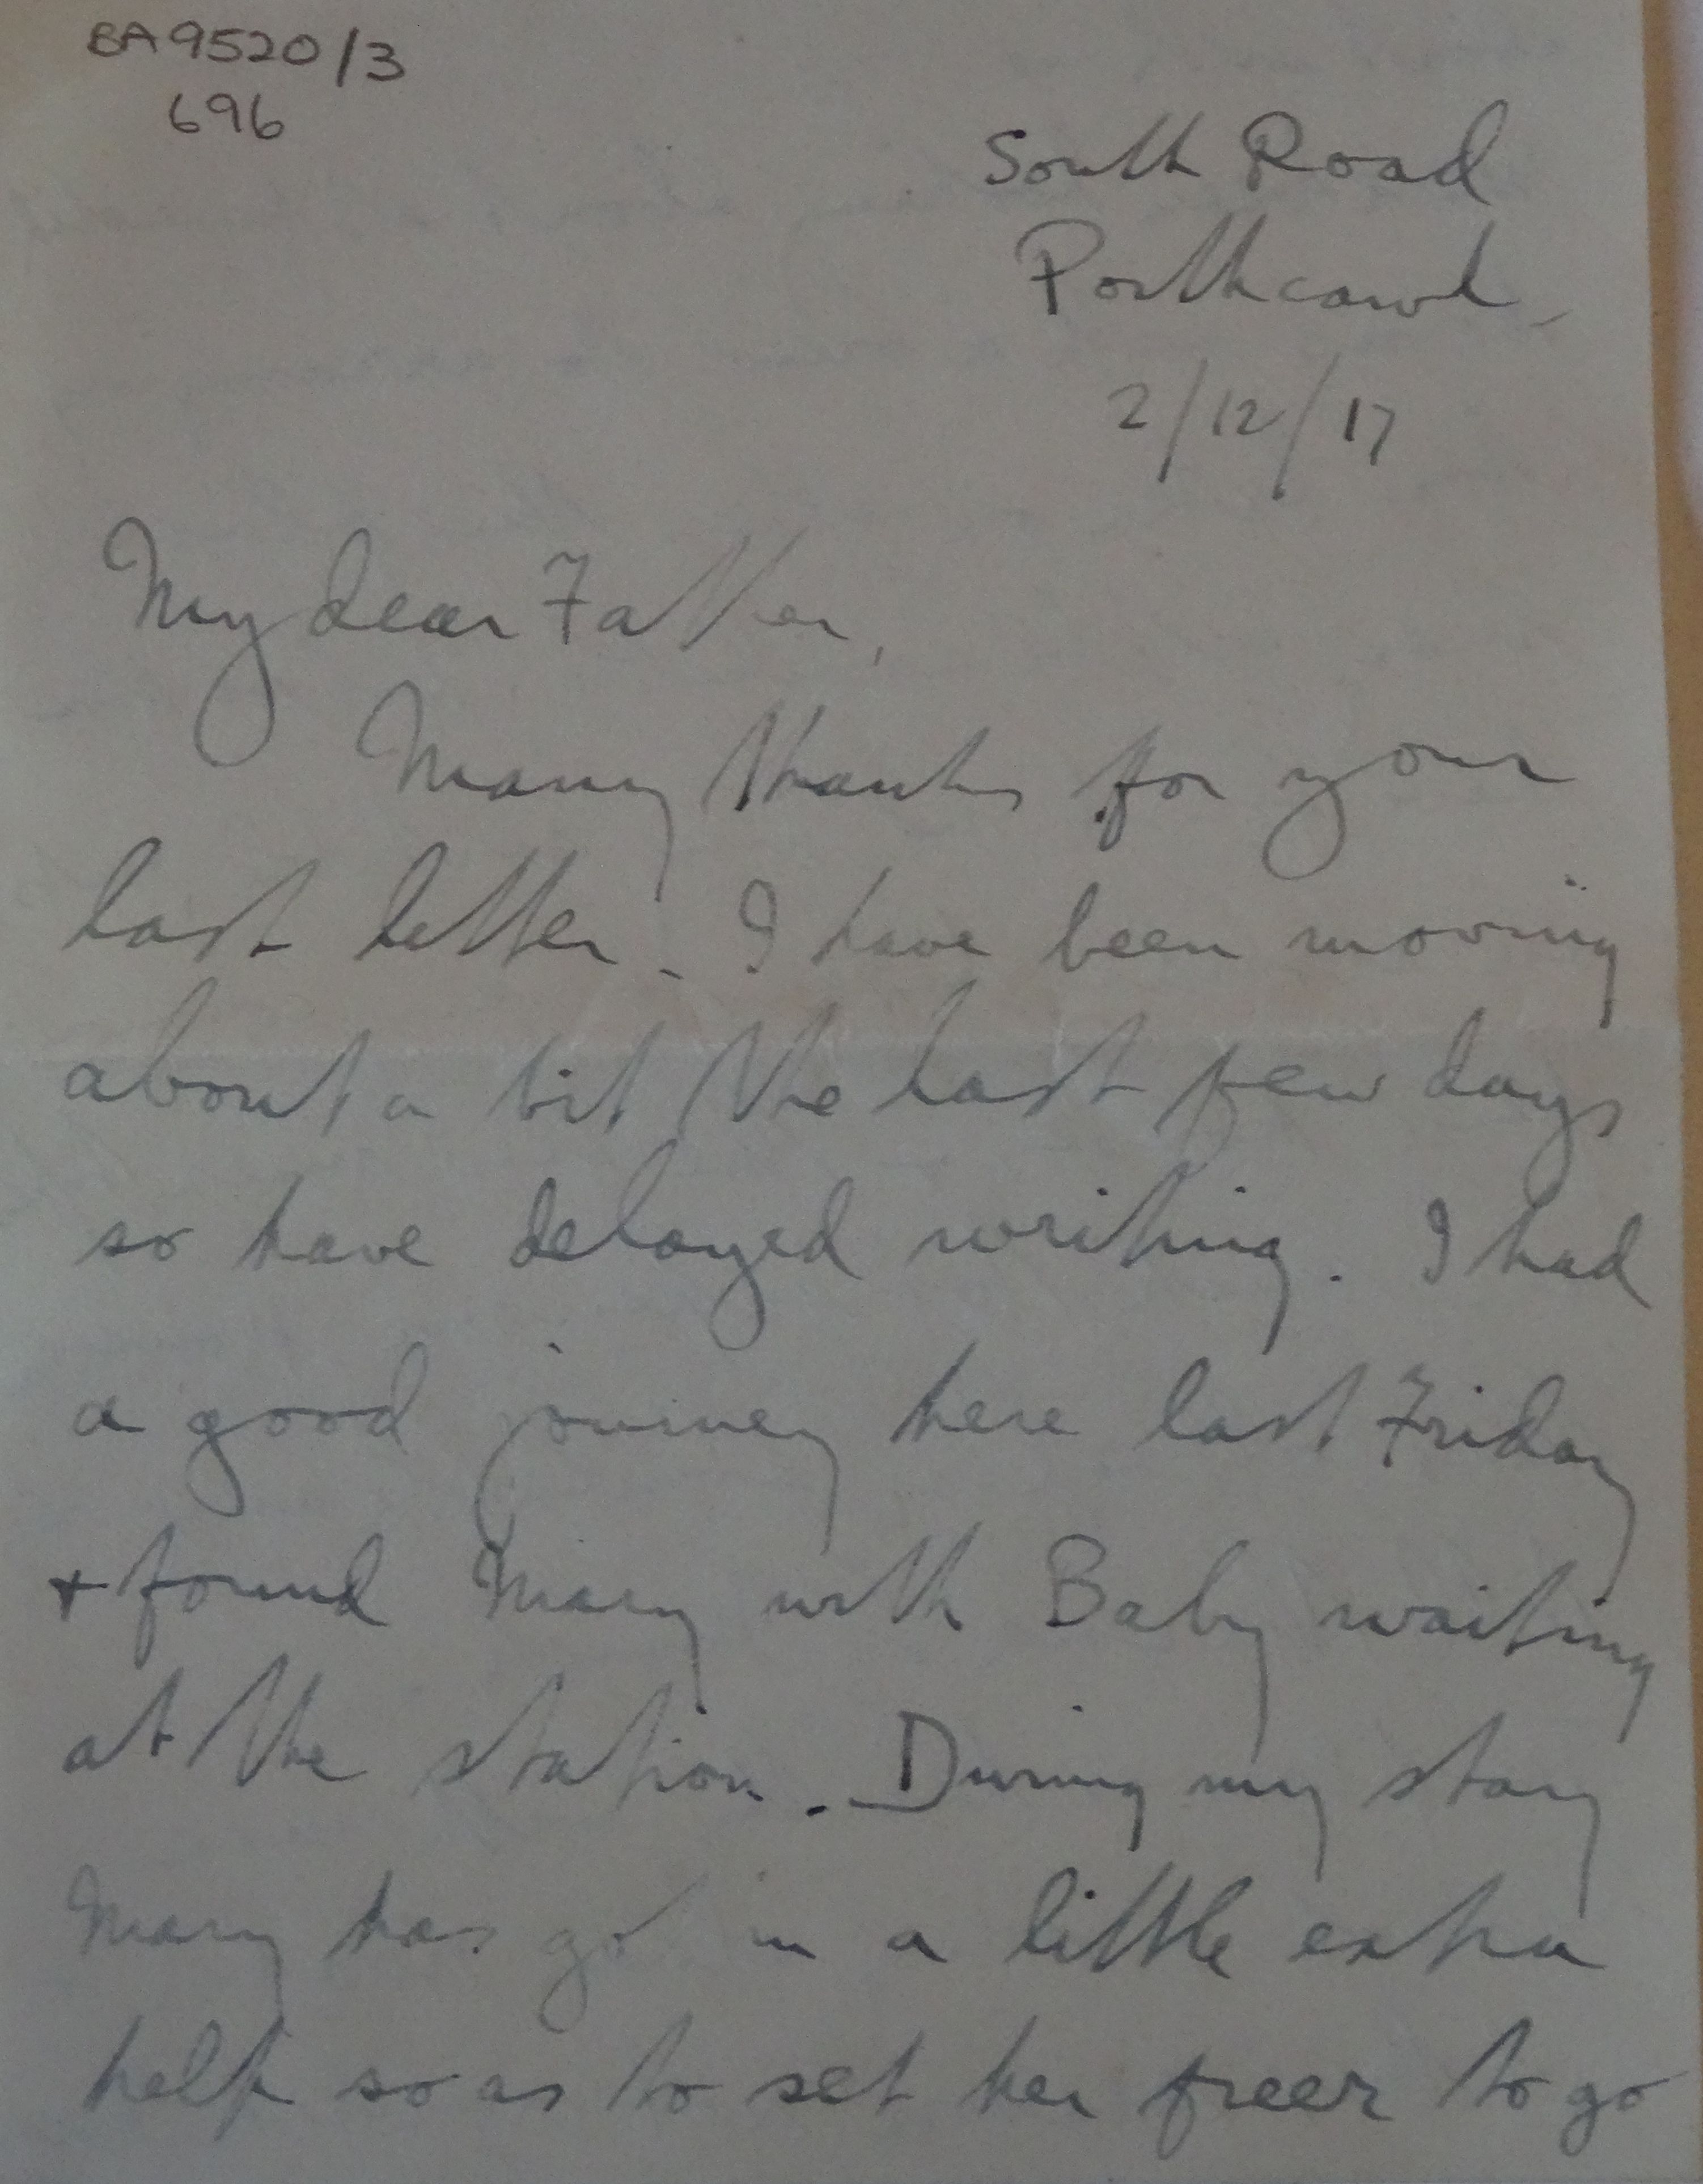 BA9520/3
696
South Road
Porthcawl,
2/12/17
My dear Father,
Many thanks for your
last letter. I have been moving
about a bit the last few days
so have delayed writing. I had
a good journey here last Friday
+ found Mary with Baby waiting
at the station. During my stay
Mary has got in a little extra
help so as to set her freer to go